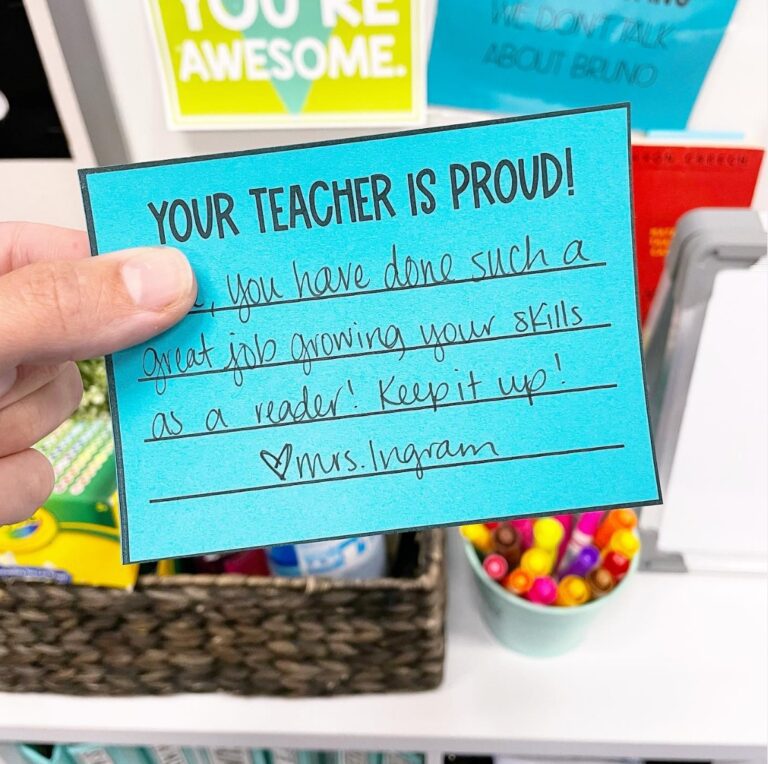 YOU'RE
AWESOME.
WE DON'T TALK
ABOUT BRUNO
YOUR TEACHER IS PROUD!
, you have done such a
great job growing your skills
as a reader! Keep it up!
♡mrs. Ingram